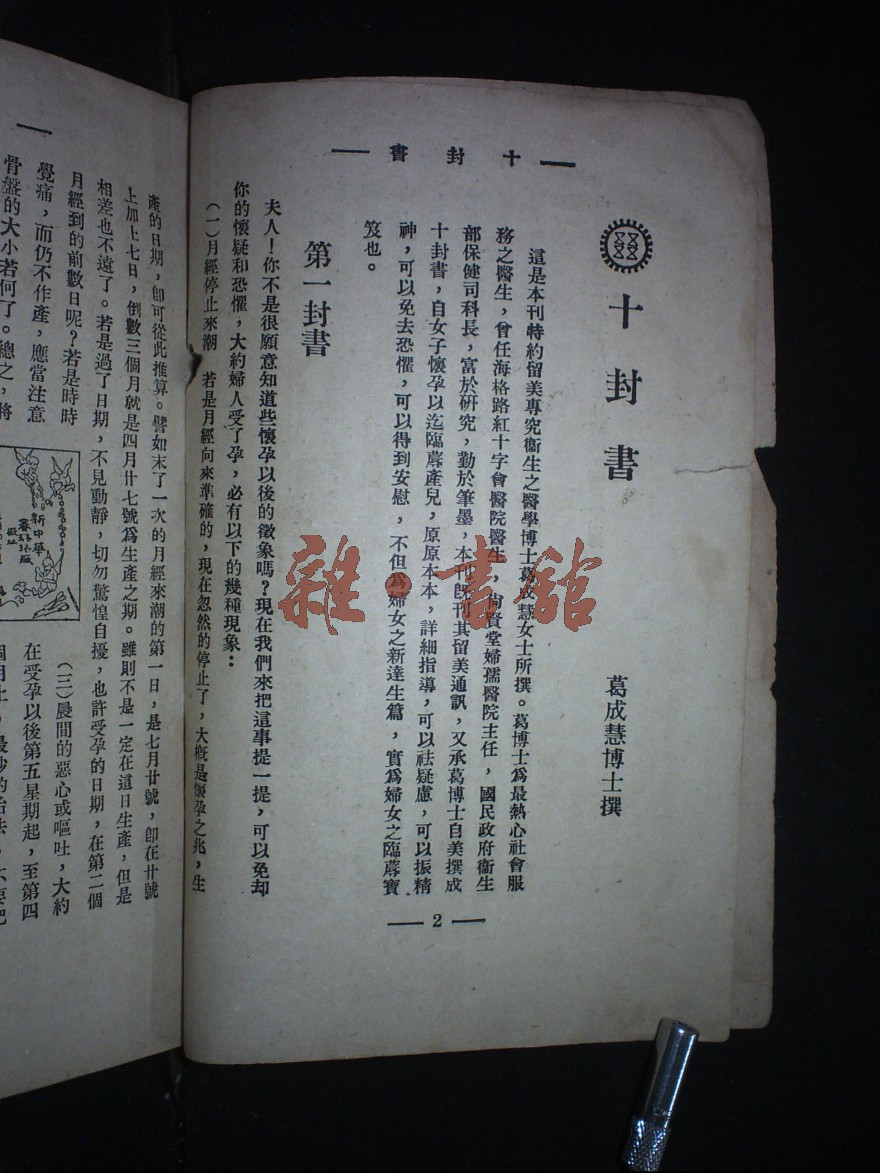 十封書
十封書
葛成慧博士撰
這是本刊特約留美專究衞生之醫學博士葛成慧女士所撰。葛博士爲最熱心社會服
務之醫生，曾任海格路紅十字會醫院醫生，尙賢堂婦孺醫院主任，國民政府衞生
部保健司科長，富於硏究，勤於筆墨，本刊旣刊其留美通訊，又承葛博士自美撰成
十封書，自女子懷孕以迄臨蓐產兒，原原本本，詳細指導，可以祛疑慮，可以振精
神，可以免去恐懼，可以得到安慰，不但爲婦女之新達生篇，實爲婦女之臨蓐寶
笈也。
第一封書
夫人！你不是很願意知道些懷孕以後的徵象嗎？現在我們來把這事提一提，可以免却
你的懷疑和恐懼，大約婦人受了孕，必有以下的幾種現象：
（一）月經停止來潮　若是月經向來準確的，現在忽然的停止了，大槪是懷孕之兆，生
2
產的日期，卽可從此推算。譬如末了一次的月經來潮的第一日，是七月廿號，卽在廿號
上加上七日，倒數三個月就是四月廿七號爲生產之期。雖則不是一定在這日生產，但是
相差也不遠了。若是過了日期，不見動靜，切勿驚惶自擾，也許受孕的日期，在第二個
月經到的前數日呢？若是時時
覺痛，而仍不作產，應當注意
骨盤的大小若何了。總之，將
新中華
（三）晨間的惡心或嘔吐，大約
在受孕以後第五星期起，至第四
雜·書館